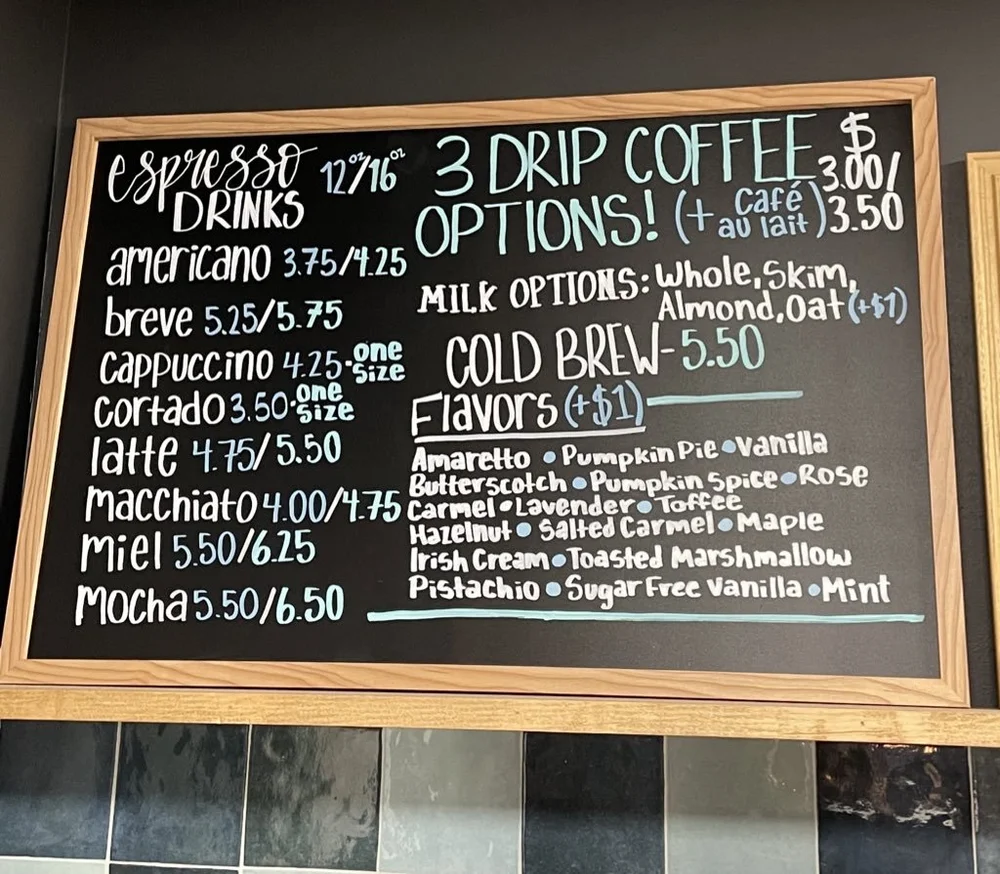 espresso 12oz/16oz
DRINKS
americano 3.75/4.25
breve 5.25/5.75
cappuccino 4.25·one size
cortado 3.50·one size
latte 4.75/5.50
macchiato 4.00/4.75
miel 5.50/6.25
mocha 5.50/6.50
3 DRIP COFFEE $3.00/
OPTIONS! (+ café au lait) 3.50
MILK OPTIONS: Whole, Skim,
Almond, Oat (+$1)
COLD BREW-5.50
Flavors (+$1)
Amaretto • Pumpkin Pie • Vanilla
Butterscotch • Pumpkin Spice • Rose
Carmel • Lavender • Toffee
Hazelnut • Salted Carmel • Maple
Irish Cream • Toasted Marshmallow
Pistachio • Sugar Free Vanilla • Mint